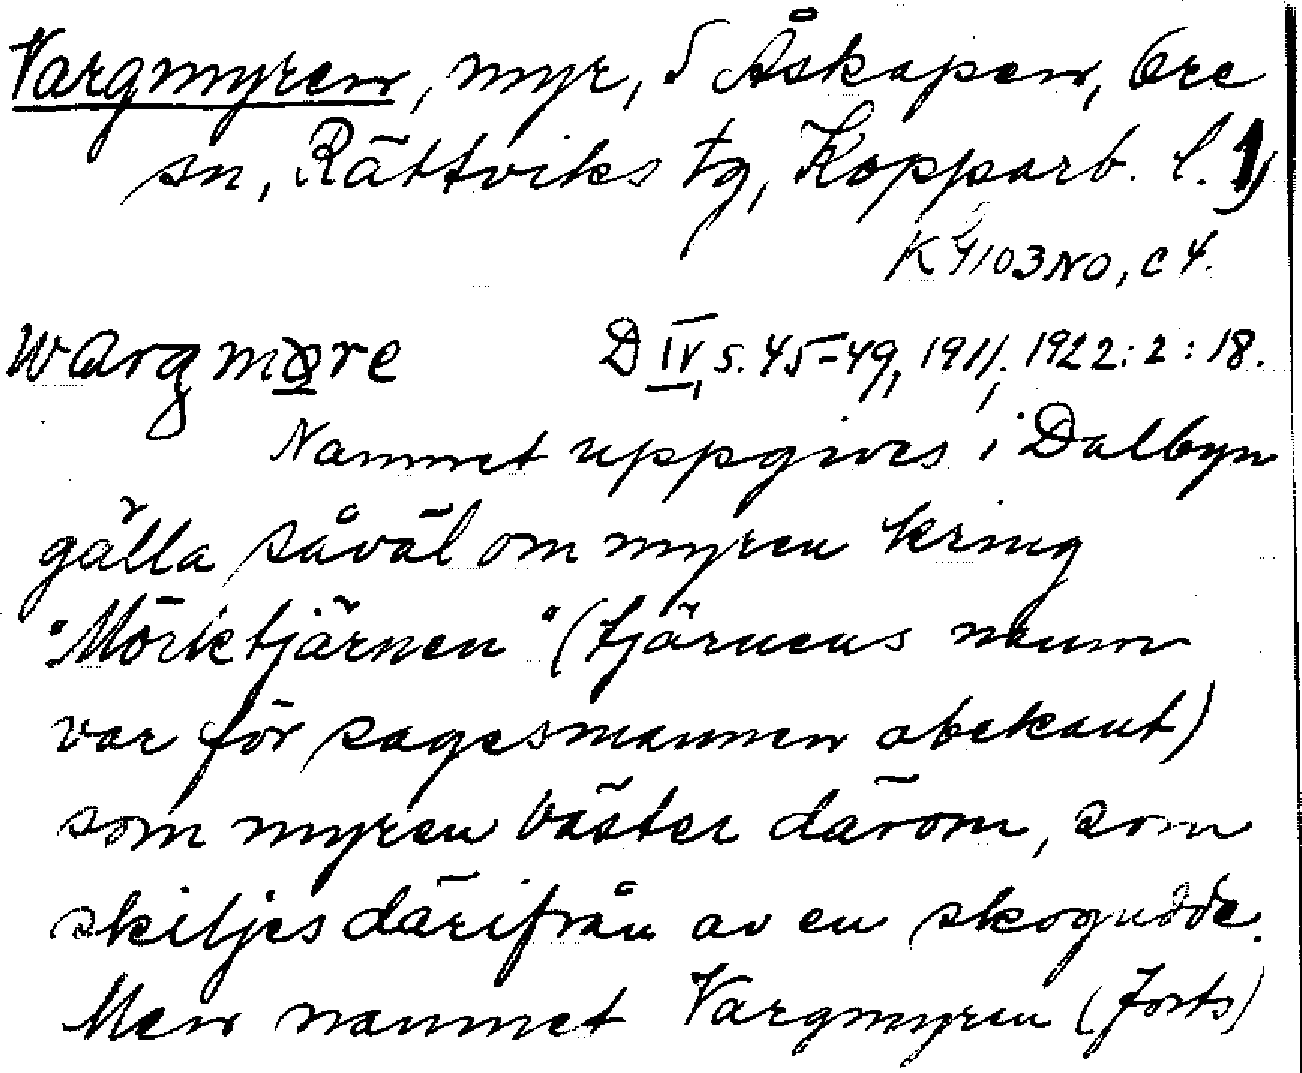 Vargmyren, myr, S Åskapen, Ore
sn, Rättviks tg, Kopparb. l. 1)
K 4103 NO, c 4.
wargmøre D IV, s. 45-49, 1911, 1922: 2: 18.
Namnet uppgives i Dalbyn
gälla såväl om myren kring
"Mörktjärnen" (tjärnens namn
var för sagesmannen obekant)
som myren väster därom, som
skiljes därifrån av en skogudde.
Men namnet Vargmyren (forts)